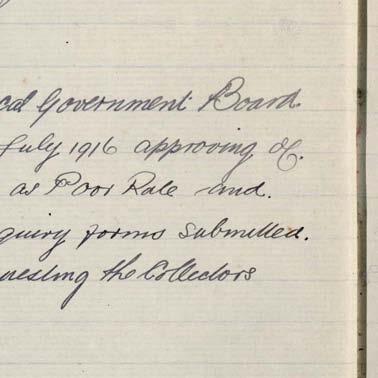 cal Government Board
July 1916 approving of
as Poor Rate and
quiry forms submitted.
uesting the Collectors